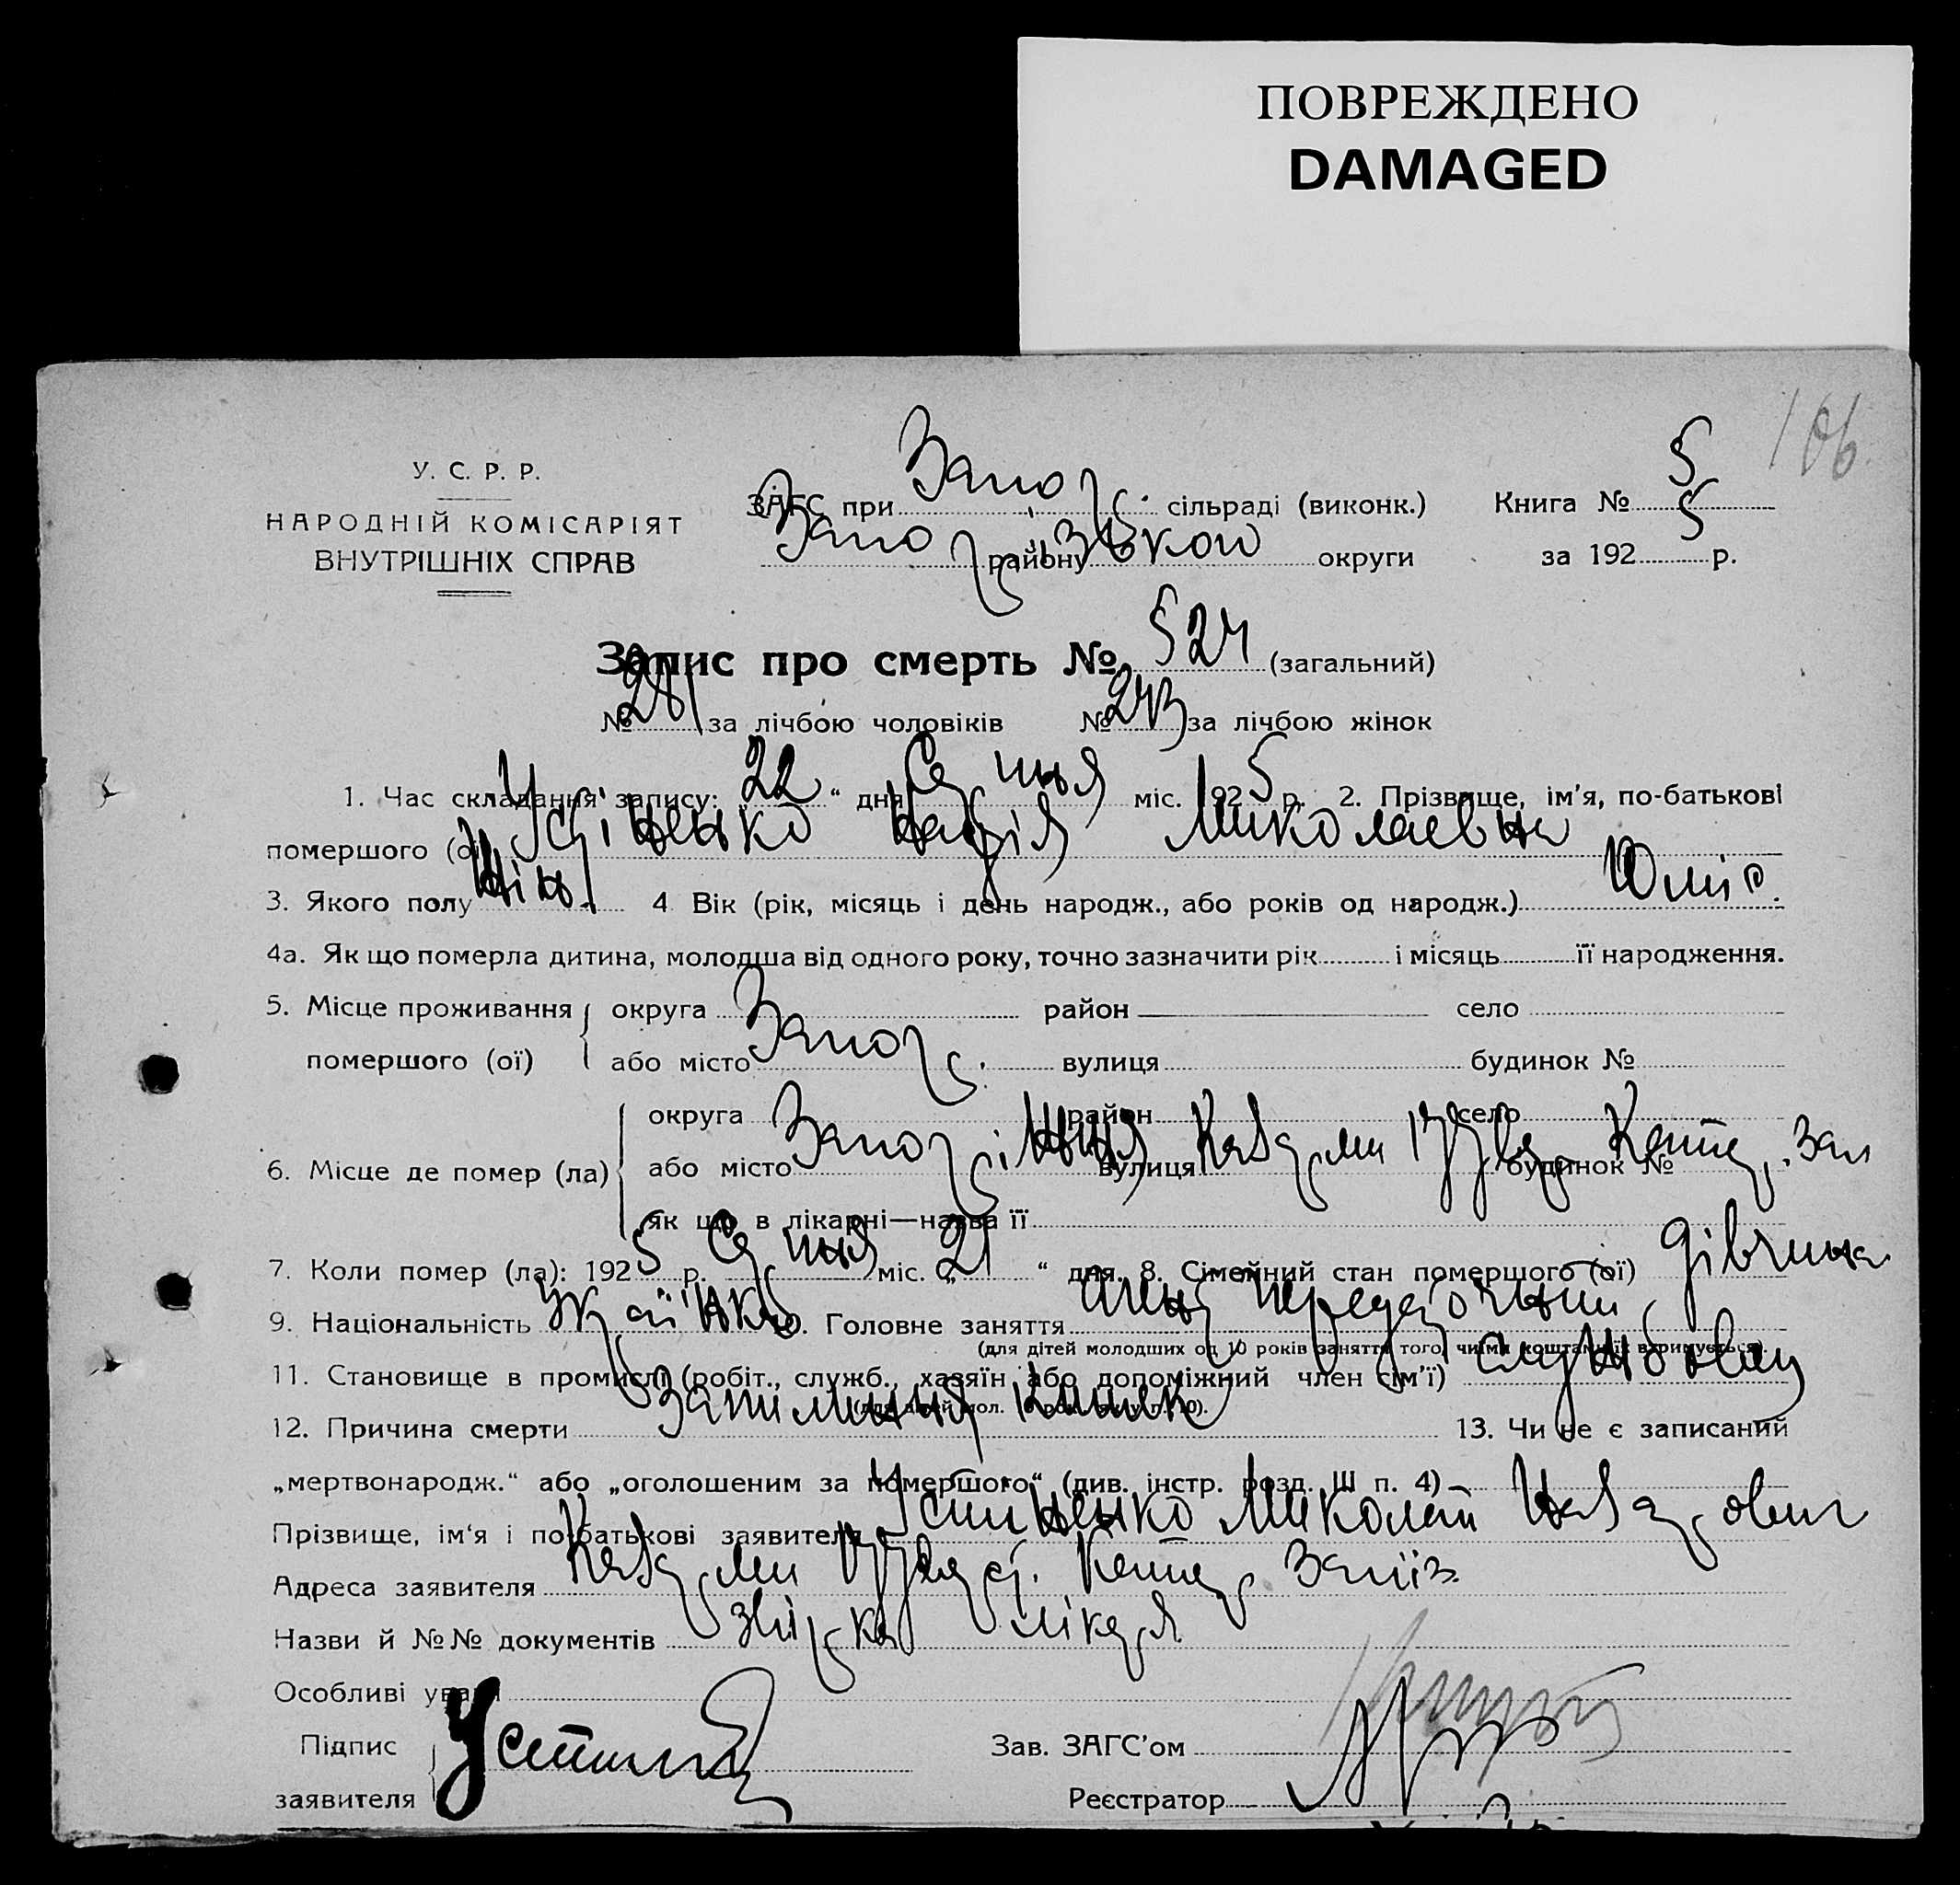 ПОВРЕЖДЕНО
DAMAGED
106
У. С. Р. Р.
НАРОДНІЙ КОМІСАРІЯТ
ВНУТРІШНІХ СПРАВ
ЗАГС при Запор. сільраді (виконк.)
Запорізької району округи
Книга № 5
за 1925 р.
Запис про смерть № 524 (загальний)
№ 281 за лічбою чоловіків № 243 за лічбою жінок
1. Час складання запису: „22“ дня Серпня міс. 1925 р. 2. Прізвище, ім’я, по-батькові
помершого (ої) Устіненко Надія Миколаевна
3. Якого полу Жіноч. 4 Вік (рік, місяць і день народж., або років од народж.) 10 міс.
4а. Як що померла дитина, молодша від одного року, точно зазначити рік і місяць її народження.
5. Місце проживання округа район село
помершого (ої) або місто Запор. вулиця будинок №
округа район село
6. Місце де помер (ла) або місто Запоріжжя вулиця будинок №
як що в лікарні—назва її
7. Коли помер (ла): 1925 р. Серпня міс. „21“ дня. 8. Сімейний стан помершого (ої) дівчина
9. Національність Українка 10. Головне заняття
(для дітей молодших од 10 років заняття того, чиїми коштами їх утримується).
11. Становище в промислі (робіт., служб., хазяїн або допоміжний член сім’ї) службовец
(для дітей мол. 10 рок. як у п. 10).
12. Причина смерти Запиленния Кишек 13. Чи не є записаний
„мертвонародж.“ або „оголошеним за помершого“ (див. інстр. розд. III п. 4)
Прізвище, ім‘я і по-батькові заявителя Устиненко Миколай Назарович
Адреса заявителя
Назви й №№ документів звірка лікаря
Особливі уваги
Підпис
заявителя
Зав. ЗАГС’ом
Реєстратор